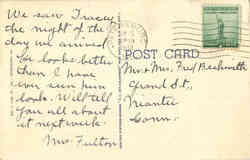 We saw Tracey
the night of the day
we arrived.
he looks better
than I have
ever seen him
look. Will tell
you all about
it next week.
Mrs Fulton
POST CARD
Mr & Mrs Fred Beckwith
Grand St.,
Niantic
Conn.